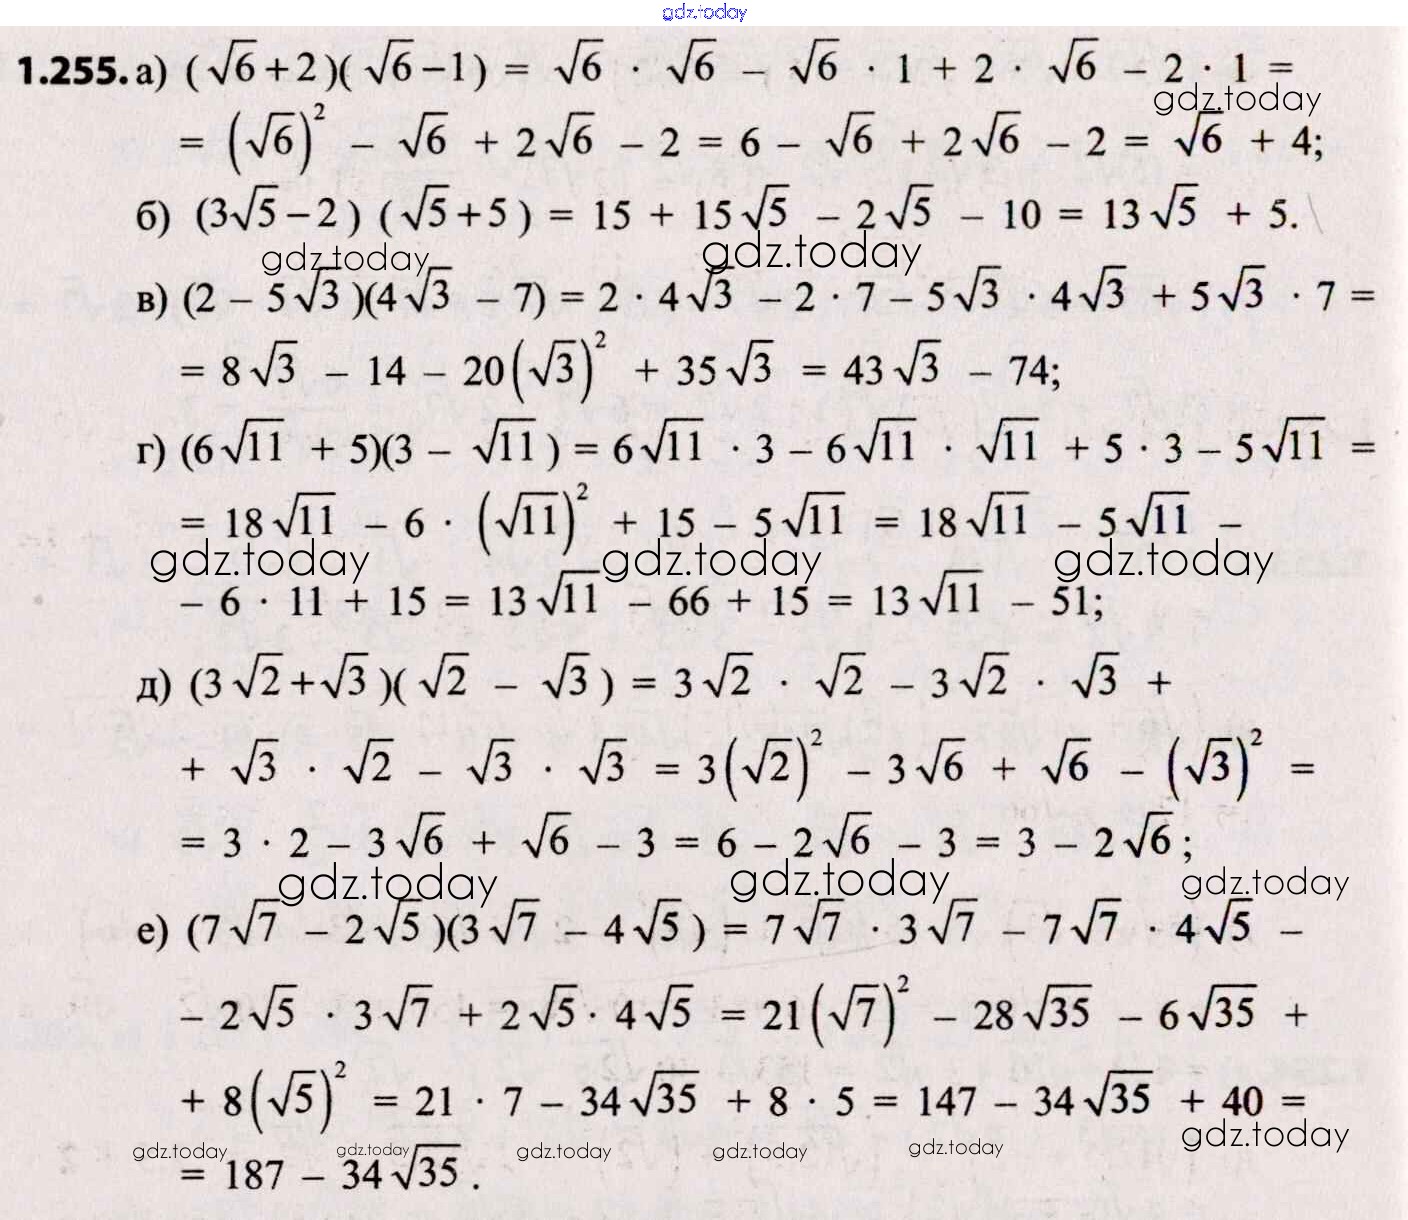 gdz.today
1.255. а) (√6+2)(√6−1) = √6 · √6 − √6 · 1 + 2 · √6 − 2 · 1 =
gdz.today
= (√6)² − √6 + 2√6 − 2 = 6 − √6 + 2√6 − 2 = √6 + 4;
б) (3√5−2) (√5+5) = 15 + 15√5 − 2√5 − 10 = 13√5 + 5.
gdz.today gdz.today
в) (2 − 5√3)(4√3 − 7) = 2 · 4√3 − 2 · 7 − 5√3 · 4√3 + 5√3 · 7 =
= 8√3 − 14 − 20(√3)² + 35√3 = 43√3 − 74;
г) (6√11 + 5)(3 − √11) = 6√11 · 3 − 6√11 · √11 + 5 · 3 − 5√11 =
= 18√11 − 6 · (√11)² + 15 − 5√11 = 18√11 − 5√11 −
gdz.today gdz.today gdz.today
− 6 · 11 + 15 = 13√11 − 66 + 15 = 13√11 − 51;
д) (3√2+√3)(√2 − √3) = 3√2 · √2 − 3√2 · √3 +
+ √3 · √2 − √3 · √3 = 3(√2)² − 3√6 + √6 − (√3)² =
= 3 · 2 − 3√6 + √6 − 3 = 6 − 2√6 − 3 = 3 − 2√6;
gdz.today gdz.today gdz.today
е) (7√7 − 2√5)(3√7 − 4√5) = 7√7 · 3√7 − 7√7 · 4√5 −
− 2√5 · 3√7 + 2√5 · 4√5 = 21(√7)² − 28√35 − 6√35 +
+ 8(√5)² = 21 · 7 − 34√35 + 8 · 5 = 147 − 34√35 + 40 =
gdz.today gdz.today gdz.today gdz.today gdz.today gdz.today
= 187 − 34√35.